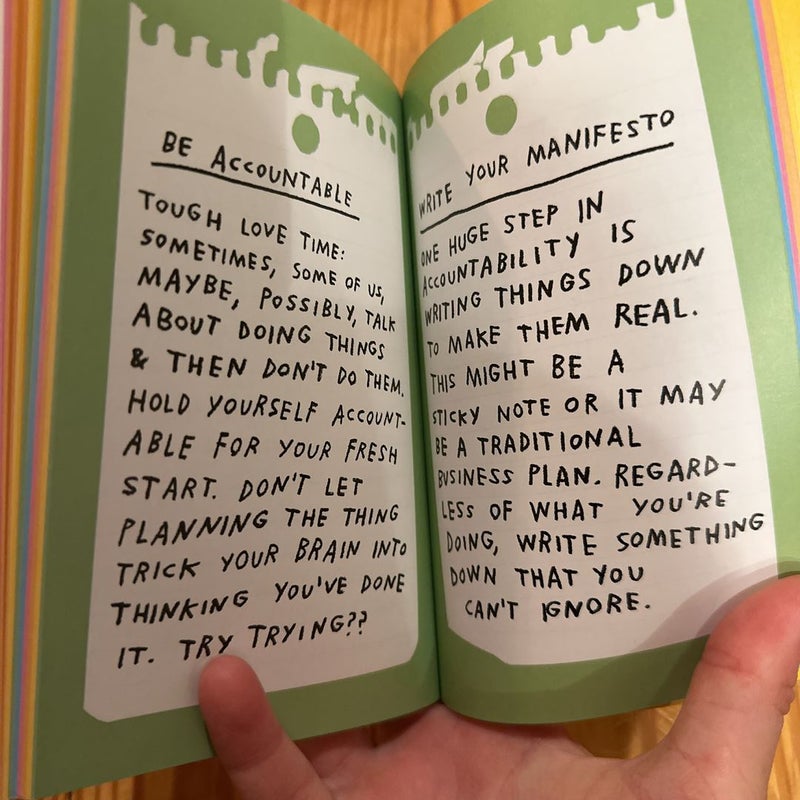 BE ACCOUNTABLE
TOUGH LOVE TIME:
SOMETIMES, SOME OF US,
MAYBE, POSSIBLY, TALK
ABOUT DOING THINGS
& THEN DON'T DO THEM.
HOLD YOURSELF ACCOUNT-
ABLE FOR YOUR FRESH
START. DON'T LET
PLANNING THE THING
TRICK YOUR BRAIN INTO
THINKING YOU'VE DONE
IT. TRY TRYING??
WRITE YOUR MANIFESTO
ONE HUGE STEP IN
ACCOUNTABILITY IS
WRITING THINGS DOWN
TO MAKE THEM REAL.
THIS MIGHT BE A
STICKY NOTE OR IT MAY
BE A TRADITIONAL
BUSINESS PLAN. REGARD-
LESS OF WHAT YOU'RE
DOING, WRITE SOMETHING
DOWN THAT YOU
CAN'T IGNORE.